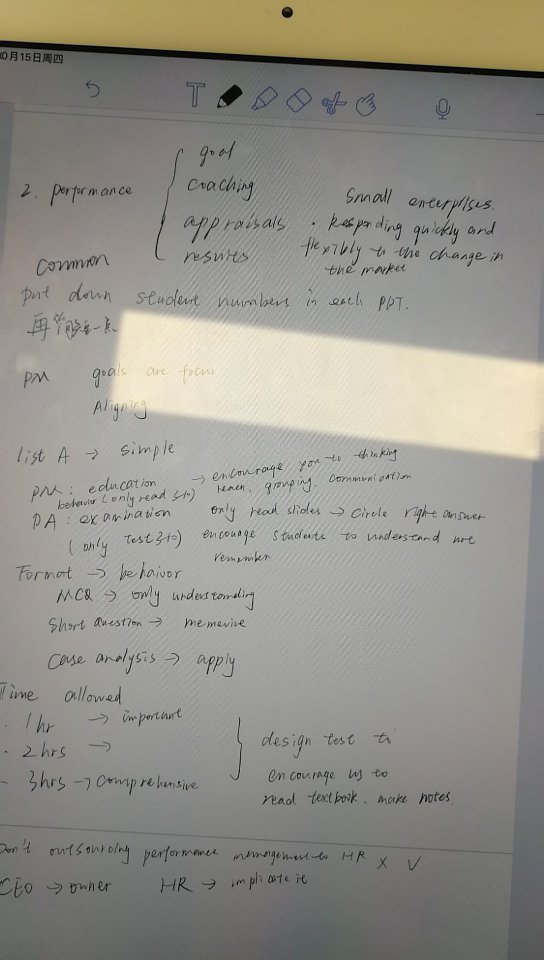 10月15日周四
T
goal
2. performance
coaching
appraisals
results
Small enterprises.
· Responding quickly and
flexibly to the change in
the market
common
put down student numbers in each PPT.
再简单一点
PM goals are focus
Aligning
list A → simple
PM : education → encourage you to thinking
behavior (only read 3-10) teach, grouping, communication
PA : examination only read slides → circle right answer
( only test 3-10) encourage students to understand not
remember
Format → behaivor
MCQ → only understanding
Short question → memerize
Case analysis → apply
Time allowed
· 1 hr → important
· 2 hrs →
- 3hrs → comprehensive
design test to
encourage us to
read textbook, make notes.
Don't outsourcing performance management to HR × V
CEO → owner HR → implicate it